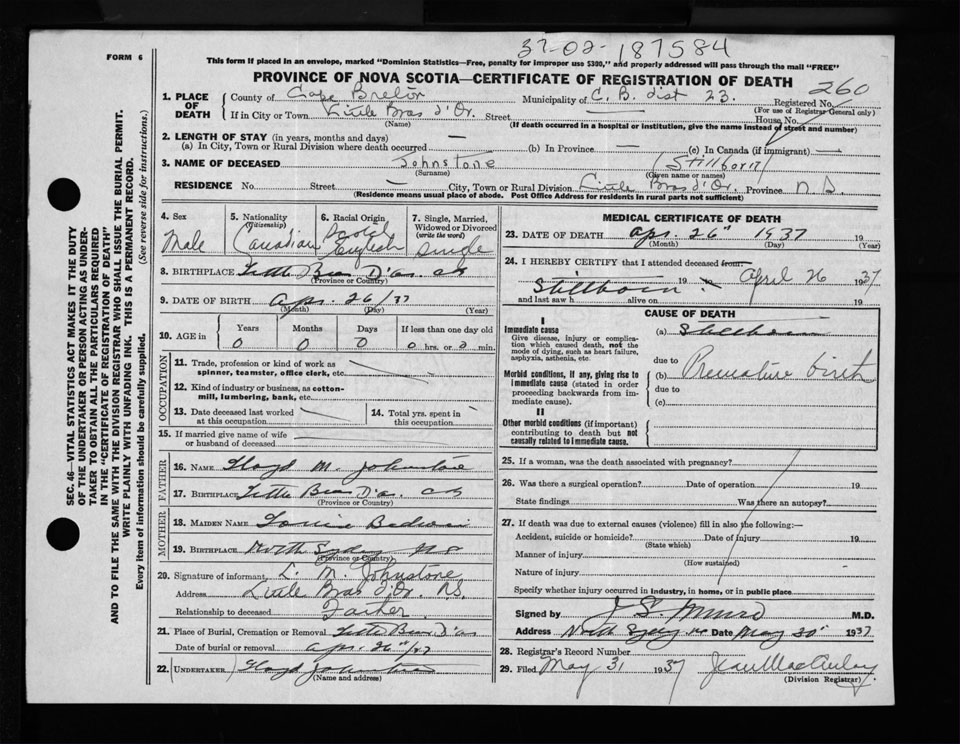 37-02-187584
FORM 6
This form if placed in an envelope, marked "Dominion Statistics—Free, penalty for improper use $300," and properly addressed will pass through the mail "FREE"
PROVINCE OF NOVA SCOTIA—CERTIFICATE OF REGISTRATION OF DEATH
260
1. PLACE OF DEATH
County of Cape Breton Municipality of C. B. dist 23. Registered No.
(For use of Registrar General only)
If in City or Town Little Bras d'Or. Street House No.
(Name) (If death occurred in a hospital or institution, give the name instead of street and number)
2. LENGTH OF STAY (in years, months and days)
(a) In City, Town or Rural Division where death occurred — (b) In Province — (c) In Canada (if immigrant) —
3. NAME OF DECEASED Johnstone (Stillborn)
(Surname) (Given name or names)
RESIDENCE No. Street — City, Town or Rural Division Little Bras d'Or. Province N.S.
(Residence means usual place of abode. Post Office Address for residents in rural parts not sufficient)
SEC. 46—VITAL STATISTICS ACT MAKES IT THE DUTY
OF THE UNDERTAKER OR PERSON ACTING AS UNDER-
TAKER TO OBTAIN ALL THE PARTICULARS REQUIRED
IN THE "CERTIFICATE OF REGISTRATION OF DEATH"
AND TO FILE THE SAME WITH THE DIVISION REGISTRAR WHO SHALL ISSUE THE BURIAL PERMIT.
WRITE PLAINLY WITH UNFADING INK. THIS IS A PERMANENT RECORD.
Every item of information should be carefully supplied. (See reverse side for instructions.)
4. Sex
Male
5. Nationality
(Citizenship)
Canadian
6. Racial Origin
Scotch
English
7. Single, Married,
Widowed or Divorced
(write the word)
Single
8. BIRTHPLACE Little Bras D'or. CB
(Province or Country)
9. DATE OF BIRTH Apr. 26/37
(Month) (Day) (Year)
10. AGE in
Years Months Days If less than one day old
0 0 0 0 hrs. or 0 min.
OCCUPATION
11. Trade, profession or kind of work as
spinner, teamster, office clerk, etc.
12. Kind of industry or business, as cotton-
mill, lumbering, bank, etc.
13. Date deceased last worked
at this occupation
14. Total yrs. spent in
this occupation
15. If married give name of wife
or husband of deceased
FATHER
16. NAME Floyd M. Johnstone
17. BIRTHPLACE Little Bras D'or. CB
(Province or Country)
MOTHER
18. MAIDEN NAME Louise
19. BIRTHPLACE North Sydney NS
(Province or Country)
20. Signature of informant L. M. Johnstone
Address Little Bras d'Or. N.S.
Relationship to deceased Father.
21. Place of Burial, Cremation or Removal Little Bras D'or
Date of burial or removal Apr. 26"/37
22. UNDERTAKER Floyd Johnstone
(Name and address)
MEDICAL CERTIFICATE OF DEATH
23. DATE OF DEATH Apr. 26" 1937 19
(Month) (Day) (Year)
24. I HEREBY CERTIFY that I attended deceased from:
Stillborn 19 April 26 1937
and last saw h alive on 19
CAUSE OF DEATH
I
Immediate cause
Give disease, injury or complica-
tion which caused death, not the
mode of dying, such as heart failure,
asphyxia, asthenia, etc.
(a) Stillborn
due to
Morbid conditions, if any, giving rise to
immediate cause (stated in order
proceeding backwards from im-
mediate cause).
(b) Premature birth
due to
(c)
II
Other morbid conditions (if important)
contributing to death but not
causally related to immediate cause.
25. If a woman, was the death associated with pregnancy?
26. Was there a surgical operation? Date of operation 19
State findings Was there an autopsy?
27. If death was due to external causes (violence) fill in also the following:—
Accident, suicide or homicide? Date of injury 19
(State which)
Manner of injury
(How sustained)
Nature of injury
Specify whether injury occurred in industry, in home, or in public place
Signed by J S Munro M.D.
Address North Sydney NS Date May 30" 1937
28. Registrar's Record Number
29. Filed May 31 1937 Jean MacAulay
(Division Registrar)